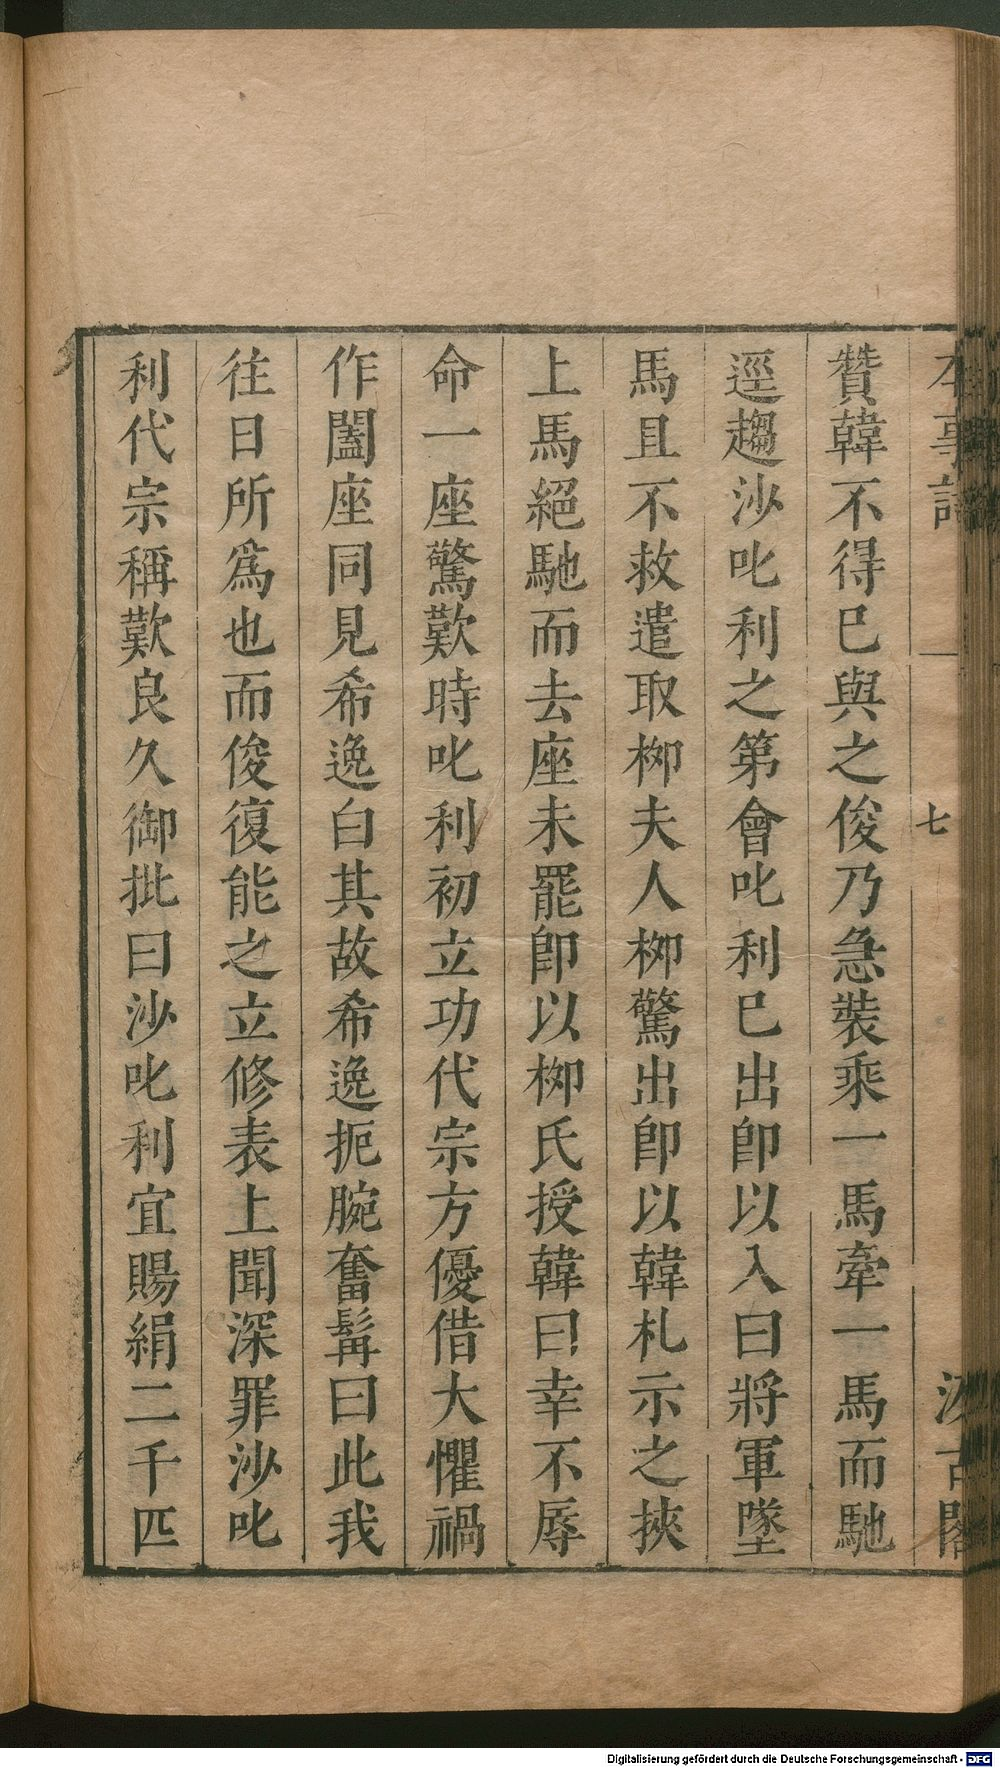 本事詩 七 汲古閣
贊韓不得巳與之俊乃急裝乘一馬牽一馬而馳
逕趨沙叱利之第會叱利巳出卽以入曰將軍墜
馬且不救遣取栁夫人栁驚出卽以韓札示之挾
上馬絕馳而去座未罷卽以栁氏授韓曰幸不辱
命一座驚歎時叱利初立功代宗方優借大懼禍
作闔座同見希逸白其故希逸扼腕奮髯曰此我
往日所爲也而俊復能之立修表上聞深罪沙叱
利代宗稱歎良久御批曰沙叱利宜賜絹二千匹
Digitalisierung gefördert durch die Deutsche Forschungsgemeinschaft - DFG